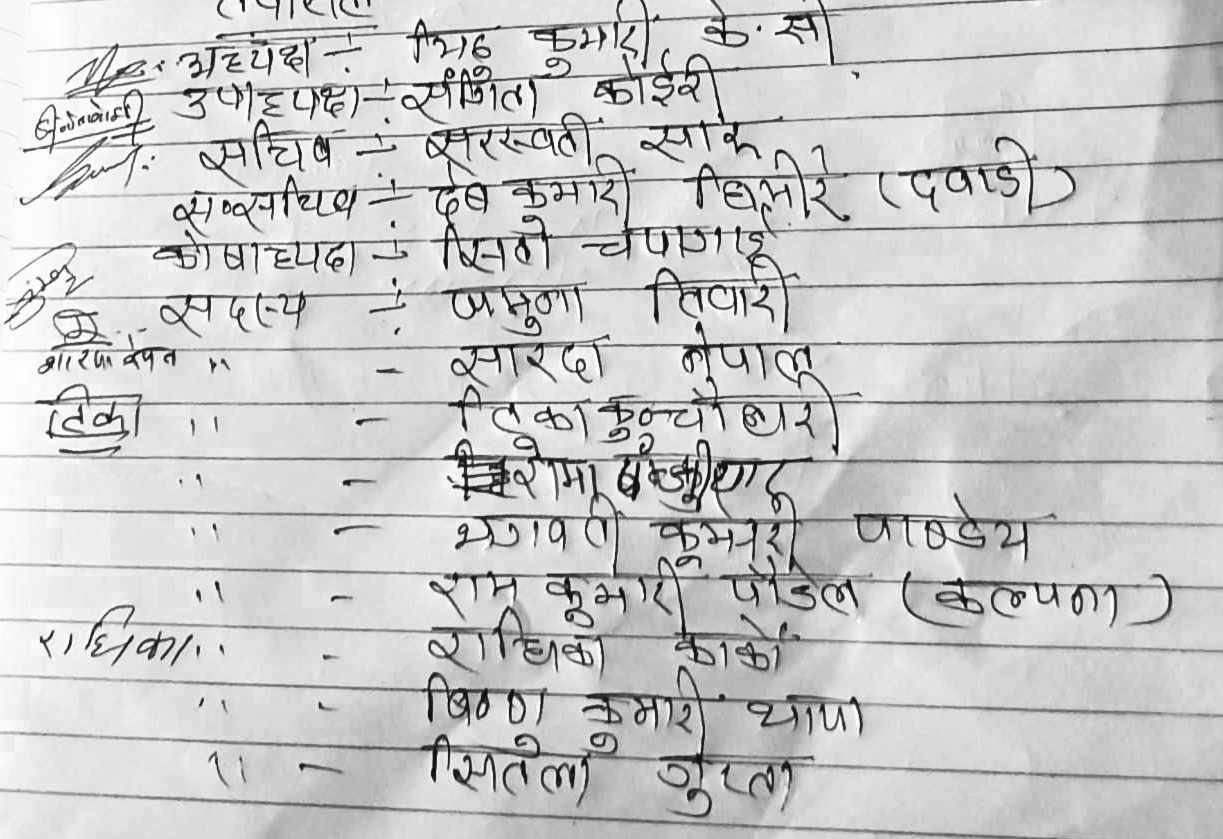 अध्यक्ष ÷ मिठु कुमारी के.सी
उपाध्यक्ष ÷ संगिता कोईरी
सचिव ÷ सरस्वती सारु
स०सचिव ÷ देव कुमारी घिमीरे (दवाडी)
कोषाध्यक्ष ÷ सिता चपागाई
सदस्य ÷ जमुना तिवारी
" - सारदा नेपाल
टिका " - टिका कुमारी
" - रोमा
" - भगवती कुमारी पाण्डेय
" - राम कुमारी पौडेल (कल्पना)
राधिका " - राधिका कार्की
" - बिष्णु कुमारी थापा
" - सितला गुप्ता